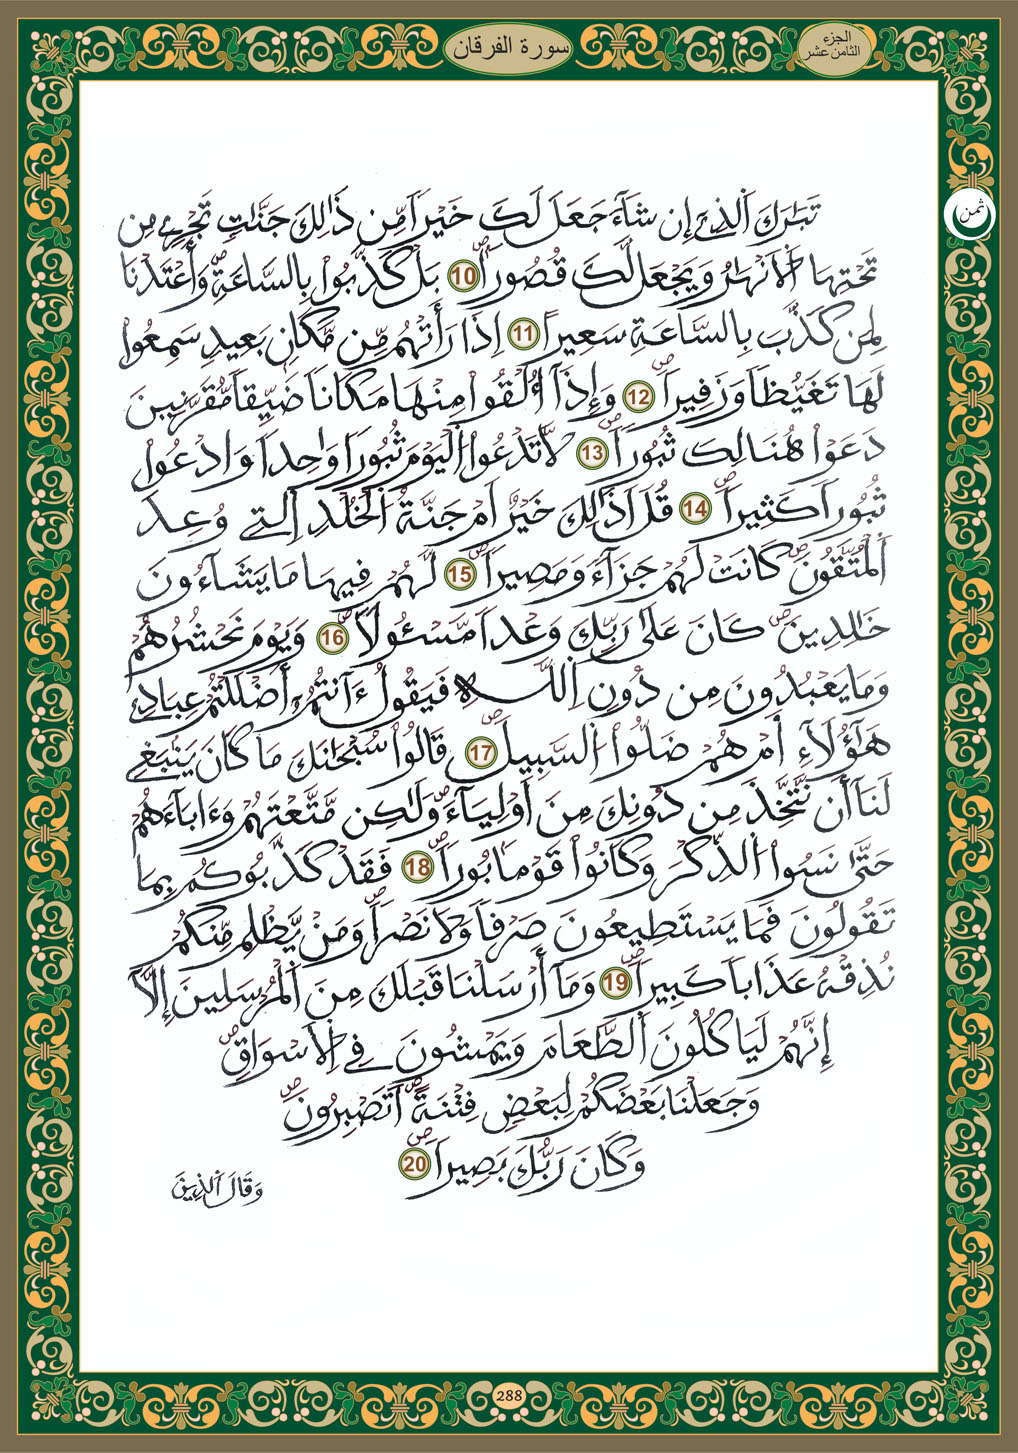 سورة الفرقان
الجزء
الثامن عشر
ثمن
تَبَٰرَكَ اَ۬لذِےٓ إِن شَآءَ جَعَلَ لَكَ خَيْراٗ مِّن ذَٰلِكَ جَنَّٰتٖ تَجْرِے مِن
تَحْتِهَا اَ۬لَانْهَٰرُ وَيَجْعَل لَّكَ قُصُوراًۖ 10 بَلْ كَذَّبُواْ بِالسَّاعَةِۖ وَأَعْتَدْنَا
لِمَن كَذَّبَ بِالسَّاعَةِ سَعِيراً 11 اِذَا رَأَتْهُم مِّن مَّكَانِۢ بَعِيدٖ سَمِعُواْ
لَهَا تَغَيُّظاٗ وَزَفِيراٗۖ 12 وَإِذَآ أُلْقُواْ مِنْهَا مَكَاناٗ ضَيِّقاٗ مُّقَرَّنِينَ
دَعَوْاْ هُنَالِكَ ثُبُوراٗۖ 13 لَّا تَدْعُواْ اُ۬لْيَوْمَ ثُبُوراٗ وَٰحِداٗ وَادْعُواْ
ثُبُوراٗ كَثِيراٗۖ 14 قُلَ اَذَٰلِكَ خَيْرٌ اَمْ جَنَّةُ اُ۬لْخُلْدِ اِ۬لتِے وُعِدَ
اَ۬لْمُتَّقُونَۖ كَانَتْ لَهُمْ جَزَآءٗ وَمَصِيراٗۖ 15 لَّهُمْ فِيهَا مَا يَشَآءُونَ
خَٰلِدِينَۖ كَانَ عَلَىٰ رَبِّكَ وَعْداٗ مَّسْـُٔولاٗۖ 16 وَيَوْمَ نَحْشُرُهُمْ
وَمَا يَعْبُدُونَ مِن دُونِ اِ۬للَّهِ فَيَقُولُ ءَآنتُمُۥٓ أَضْلَلْتُمْ عِبَادِے
هَٰٓؤُلَآءِ اَ۬مْ هُمْ ضَلُّواْ اُ۬لسَّبِيلَۖ 17 قَالُواْ سُبْحَٰنَكَ مَا كَانَ يَنۢبَغِے
لَنَآ أَن نَّتَّخِذَ مِن دُونِكَ مِنَ اَوْلِيَآءَۖ وَلَٰكِن مَّتَّعْتَهُمْ وَءَابَآءَهُمْ
حَتَّىٰ نَسُواْ اُ۬لذِّكْرَ وَكَانُواْ قَوْماَۢ بُوراٗۖ 18 فَقَدْ كَذَّبُوكُم بِمَا
تَقُولُونَ فَمَا يَسْتَطِيعُونَ صَرْفاٗ وَلَا نَصْراٗۖ وَمَنْ يَّظْلِم مِّنكُمْ
نُذِقْهُ عَذَاباٗ كَبِيراٗۖ 19 وَمَآ أَرْسَلْنَا قَبْلَكَ مِنَ اَ۬لْمُرْسَلِينَ إِلَّآ
إِنَّهُمْ لَيَاكُلُونَ اَ۬لطَّعَامَ وَيَمْشُونَ فِے اِ۬لَاسْوَاقِۖ
وَجَعَلْنَا بَعْضَكُمْ لِبَعْضٖ فِتْنَةًۖ اَتَصْبِرُونَۖ
وَكَانَ رَبُّكَ بَصِيراٗۖ 20
وَقَالَ اَ۬لذِينَ
288